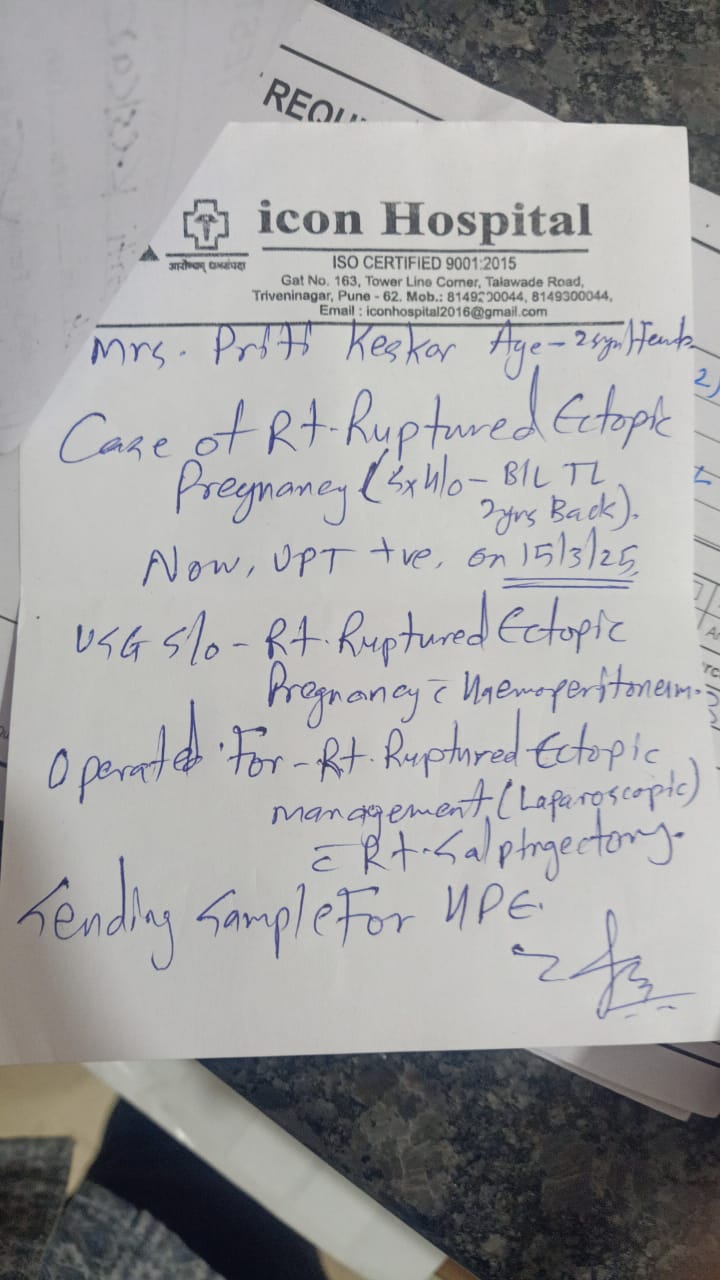 REQU
icon Hospital
आरोग्यम् धनसंपदा
ISO CERTIFIED 9001:2015
Gat No. 163, Tower Line Corner, Talawade Road,
Triveninagar, Pune - 62. Mob.: 8149200044, 8149300044,
Email : iconhospital2016@gmail.com
Mrs. Priti Keskar Age-
Case of Rt. Ruptured Ectopic
Pregnancy (Sx H/o - B/L TL
2yrs Back).
Now, UPT +ve, on 15/3/25,
USG S/o - Rt. Ruptured Ectopic
Pregnancy c̄ Haemoperitoneum.
Operated For - Rt. Ruptured Ectopic
management (Laparoscopic)
c̄ Rt. Salpingectomy.
Sending Sample For HPE.
2)